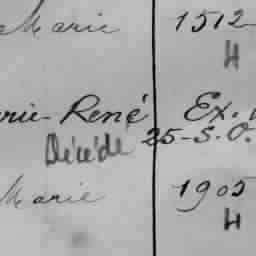 Marie 1512
H
rie-René Ex.
Décédé 25-S.O.
Marie 1905
H